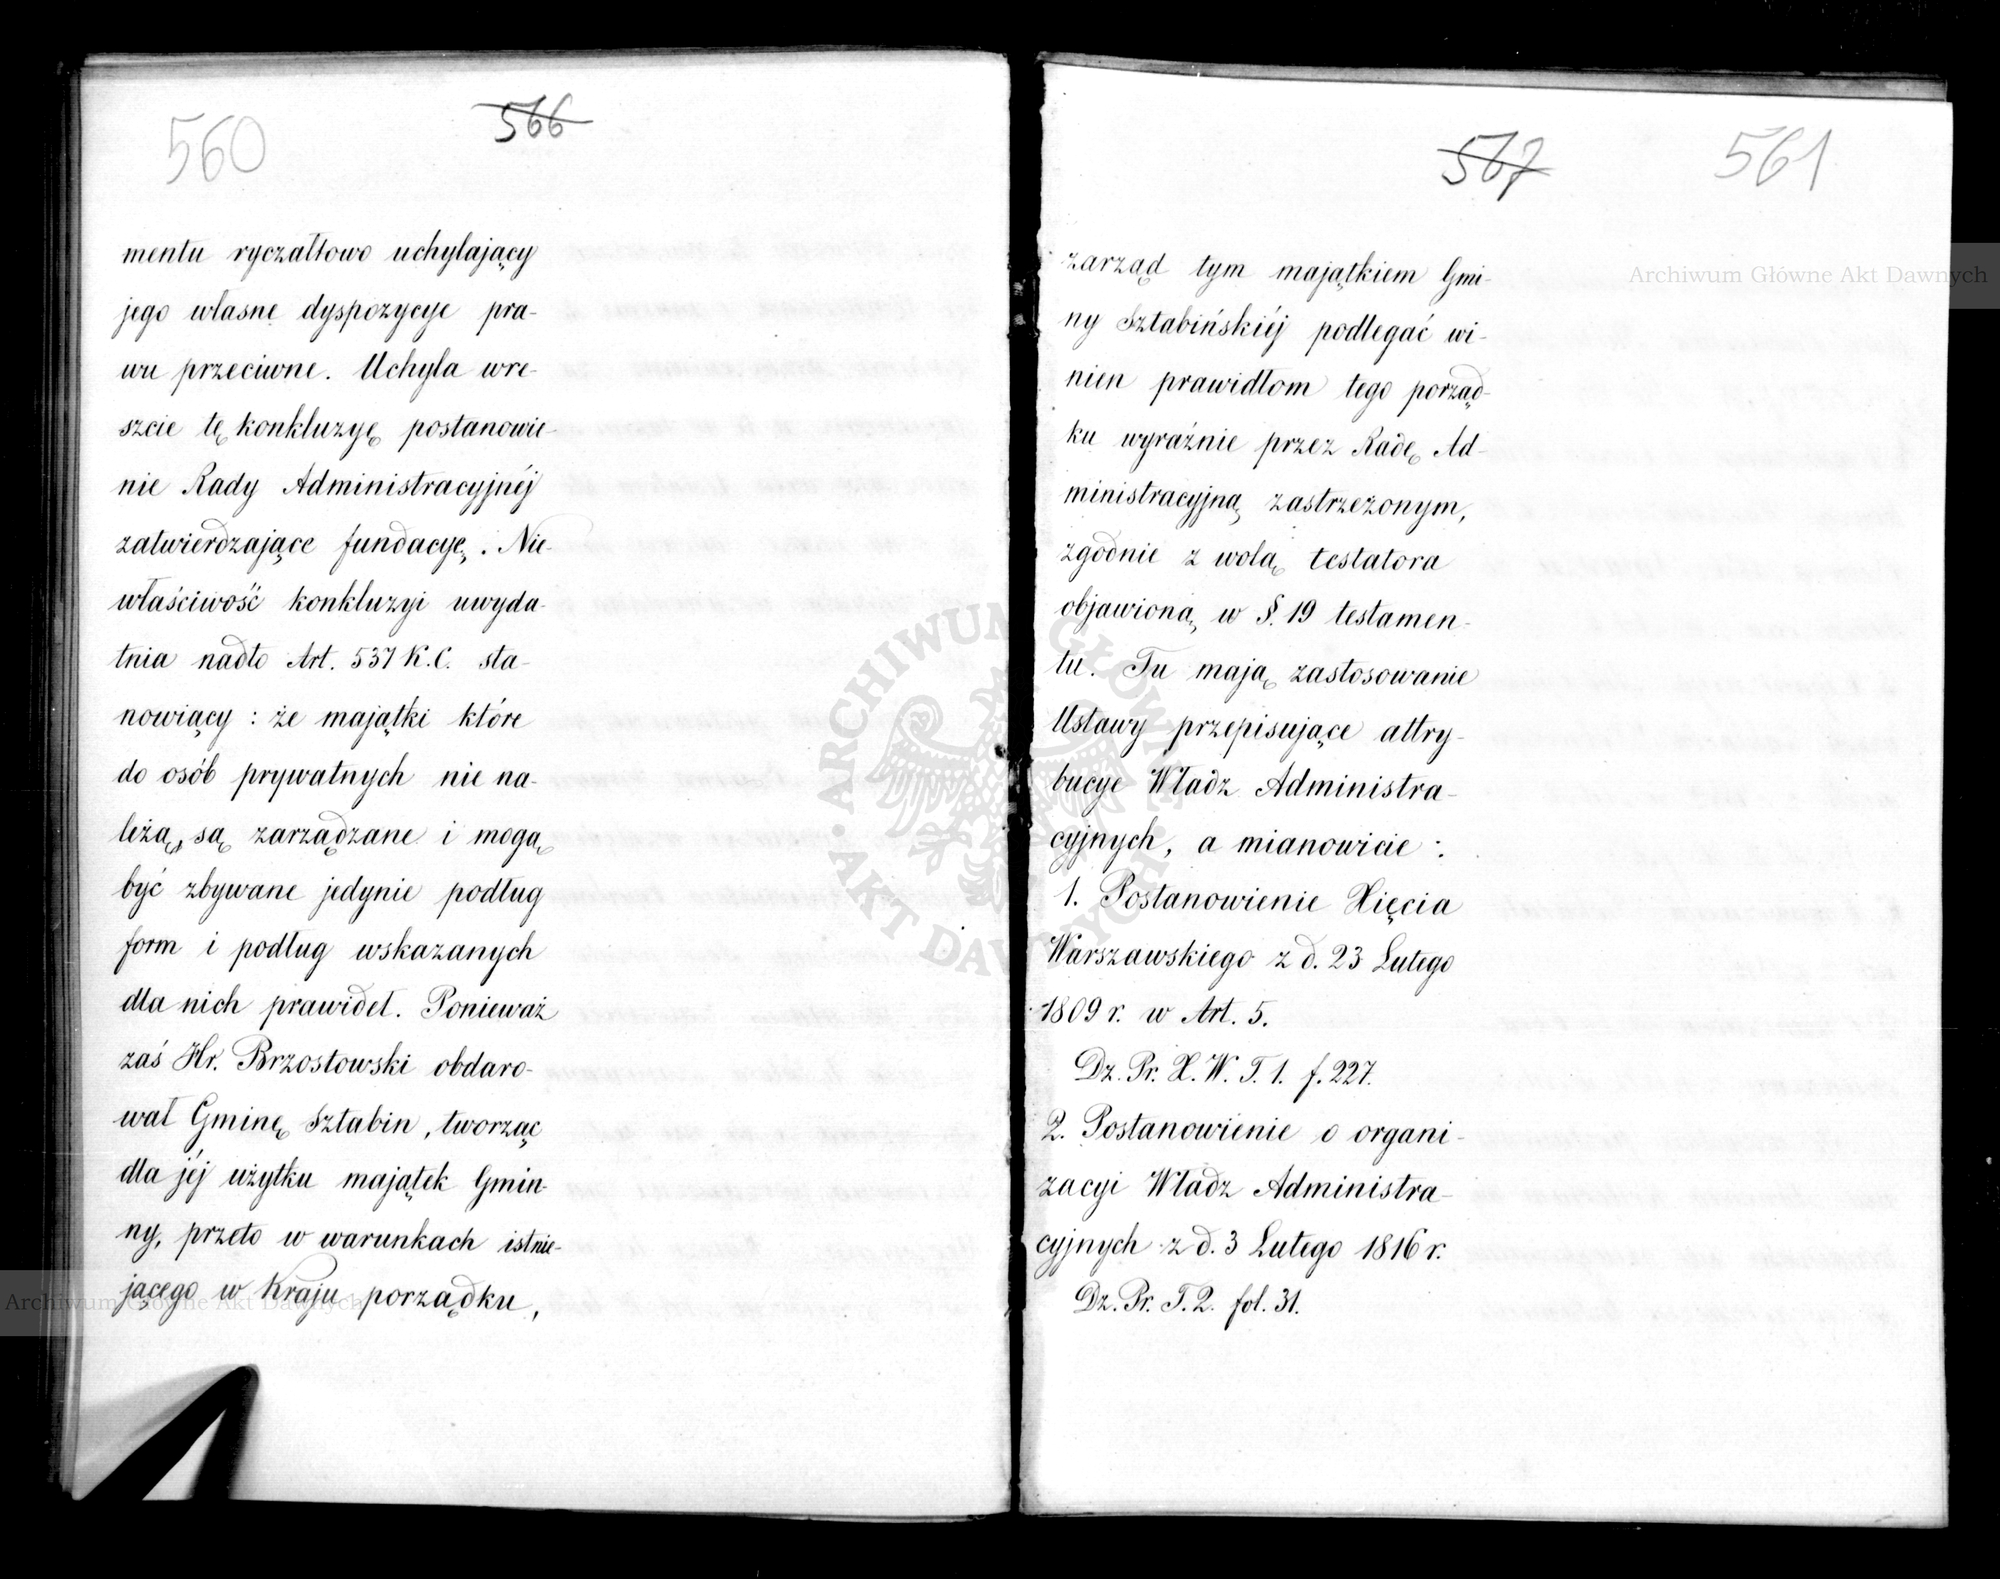 560
566
mentu ryczałtowo uchylający
jego własne dyspozycye pra-
wu przeciwne. Uchyla wre-
szcie tę konkluzyę postanowie-
nie Rady Administracyjnéj
zatwierdzające fundacyę. Nie-
właściwość konkluzyi uwyda-
tnia nadto Art. 537 K.C. sta-
nowiący: że majątki które
do osób prywatnych nie na-
leżą, są zarządzane i mogą
być zbywane jedynie podług
form i podług wskazanych
dla nich prawideł. Ponieważ
zaś Hr. Brzostowski obdaro-
wał Gminę Sztabin, tworząc
dla jéj użytku majątek Gmin-
ny, przeto w warunkach istnie-
jącego w Kraju porządku,
Archiwum Główne Akt Dawnych
567
561
zarząd tym majątkiem Gmi-
ny Sztabińskiéj podlegać wi-
nien prawidłom tego porząd-
ku wyraźnie przez Radę Ad-
ministracyjną zastrzeżonym,
zgodnie z wolą testatora
objawioną w §. 19 testamen-
tu. Tu mają zastosowanie
Ustawy przepisujące attry-
bucye Władz Administra-
cyjnych, a mianowicie:
1. Postanowienie Xięcia
Warszawskiego z d. 23 Lutego
1809 r. w Art. 5.
Dz. Pr. X. W. T. 1. f. 227.
2. Postanowienie o organi-
zacyi Władz Administra-
cyjnych z d. 3 Lutego 1816 r.
Dz. Pr. T. 2. fol. 31.
Archiwum Główne Akt Dawnych
ARCHIWUM GŁÓWNE
AKT DAWNYCH